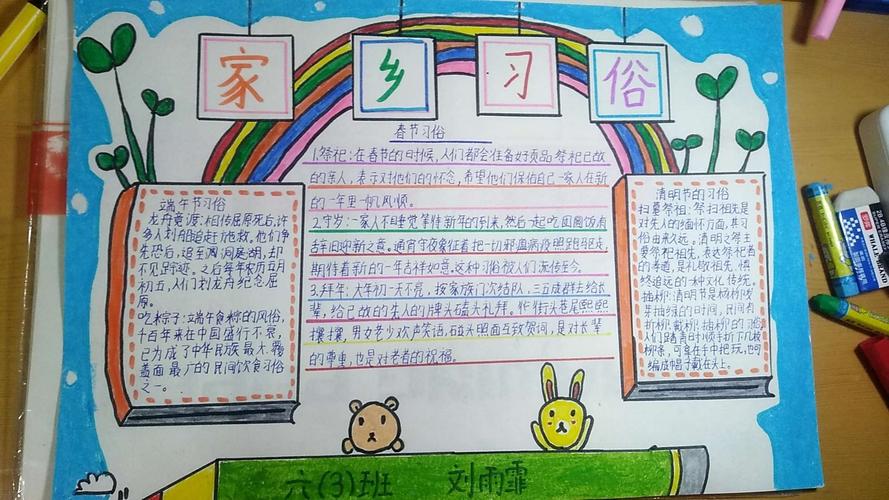 家乡习俗
春节习俗
1.祭祀:在春节的时候,人们都会准备好贡品祭祀已故
的亲人,表示对他们的怀念,希望他们保佑自己一家人在新
的一年里一帆风顺。
2.守岁:一家人不睡觉等待新年的到来,然后一起吃团圆饭有
辞旧迎新之意。通宵守夜象征着把一切邪瘟病疫照跑驱走,
期待着新的一年吉祥如意。这种习俗被人们流传至今。
3.拜年:大年初一天不亮,按家族门次结队,三五成群去给长
辈,给已故的亲人的牌头磕头礼拜。
街头巷尾熙熙
攘攘,男女老少欢声笑语,碰头照面互致贺词,是对长辈
的尊重,也是对老者的祝福。
端午节习俗
龙舟竞渡:相传屈原死后,许
多人划船追赶拯救。他们争
先恐后,追至洞庭湖,却
不见踪迹。之后每年农历五月
初五,人们划龙舟纪念屈
原。
吃粽子:端午食粽的风俗,
千百年来在中国盛行不衰,
已为成了中华民族最大覆
盖面最广的民间饮食习俗
之一。
清明节的习俗
扫墓祭祖:祭扫祖先是
对先人的缅怀方面,其习
俗由来久远。清明之祭主
要祭祀祖先,表达祭祀者
的孝道,是礼敬祖先、慎
终追远的一种文化传统。
插柳:清明节是杨柳发
芽抽绿的时间,民间有
折柳、戴柳、插柳的习俗
人们踏青时顺手折下几枝
柳条,可拿在手中把玩,也可
编成帽子戴在头上。
六(3)班 刘雨霏
WHALE BRAND
2B